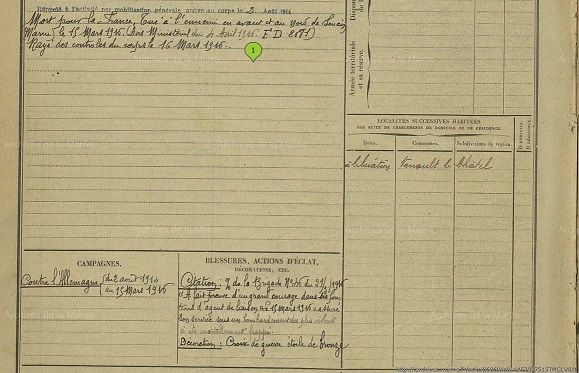 Rappelé à l'activité par mobilisation générale, arrivé au corps le 3 Août 1914
Mort pour la France, tué à l'ennemi en avant et au nord de
Marne) le 15 Mars 1916. (Avis Ministériel du 4 Avril 1916. F D 2671)
Rayé des contrôles du corps le 16 Mars 1916.
1
Armée territoriale
et sa réserve.
LOCALITÉS SUCCESSIVES HABITÉES
PAR SUITE DE CHANGEMENTS DE DOMICILE OU DE RÉSIDENCE.
Dates.
Communes.
Subdivisions de région.
D domicile.
R résidence.
Vanault le Châtel
CAMPAGNES.
Contre l'Allemagne (du 2 août 1914
au 15 Mars 1916
BLESSURES, ACTIONS D'ÉCLAT,
DÉCORATIONS, ETC.
Citation: de la Brigade N°
"A fait preuve d'un grand courage dans ses fonc
tions d'agent de liaison. Le 15 Mars 1916 a assuré
son service sous un bombardement des plus violent
a été mortellement frappé.
Décoration: Croix de guerre étoile de bronze